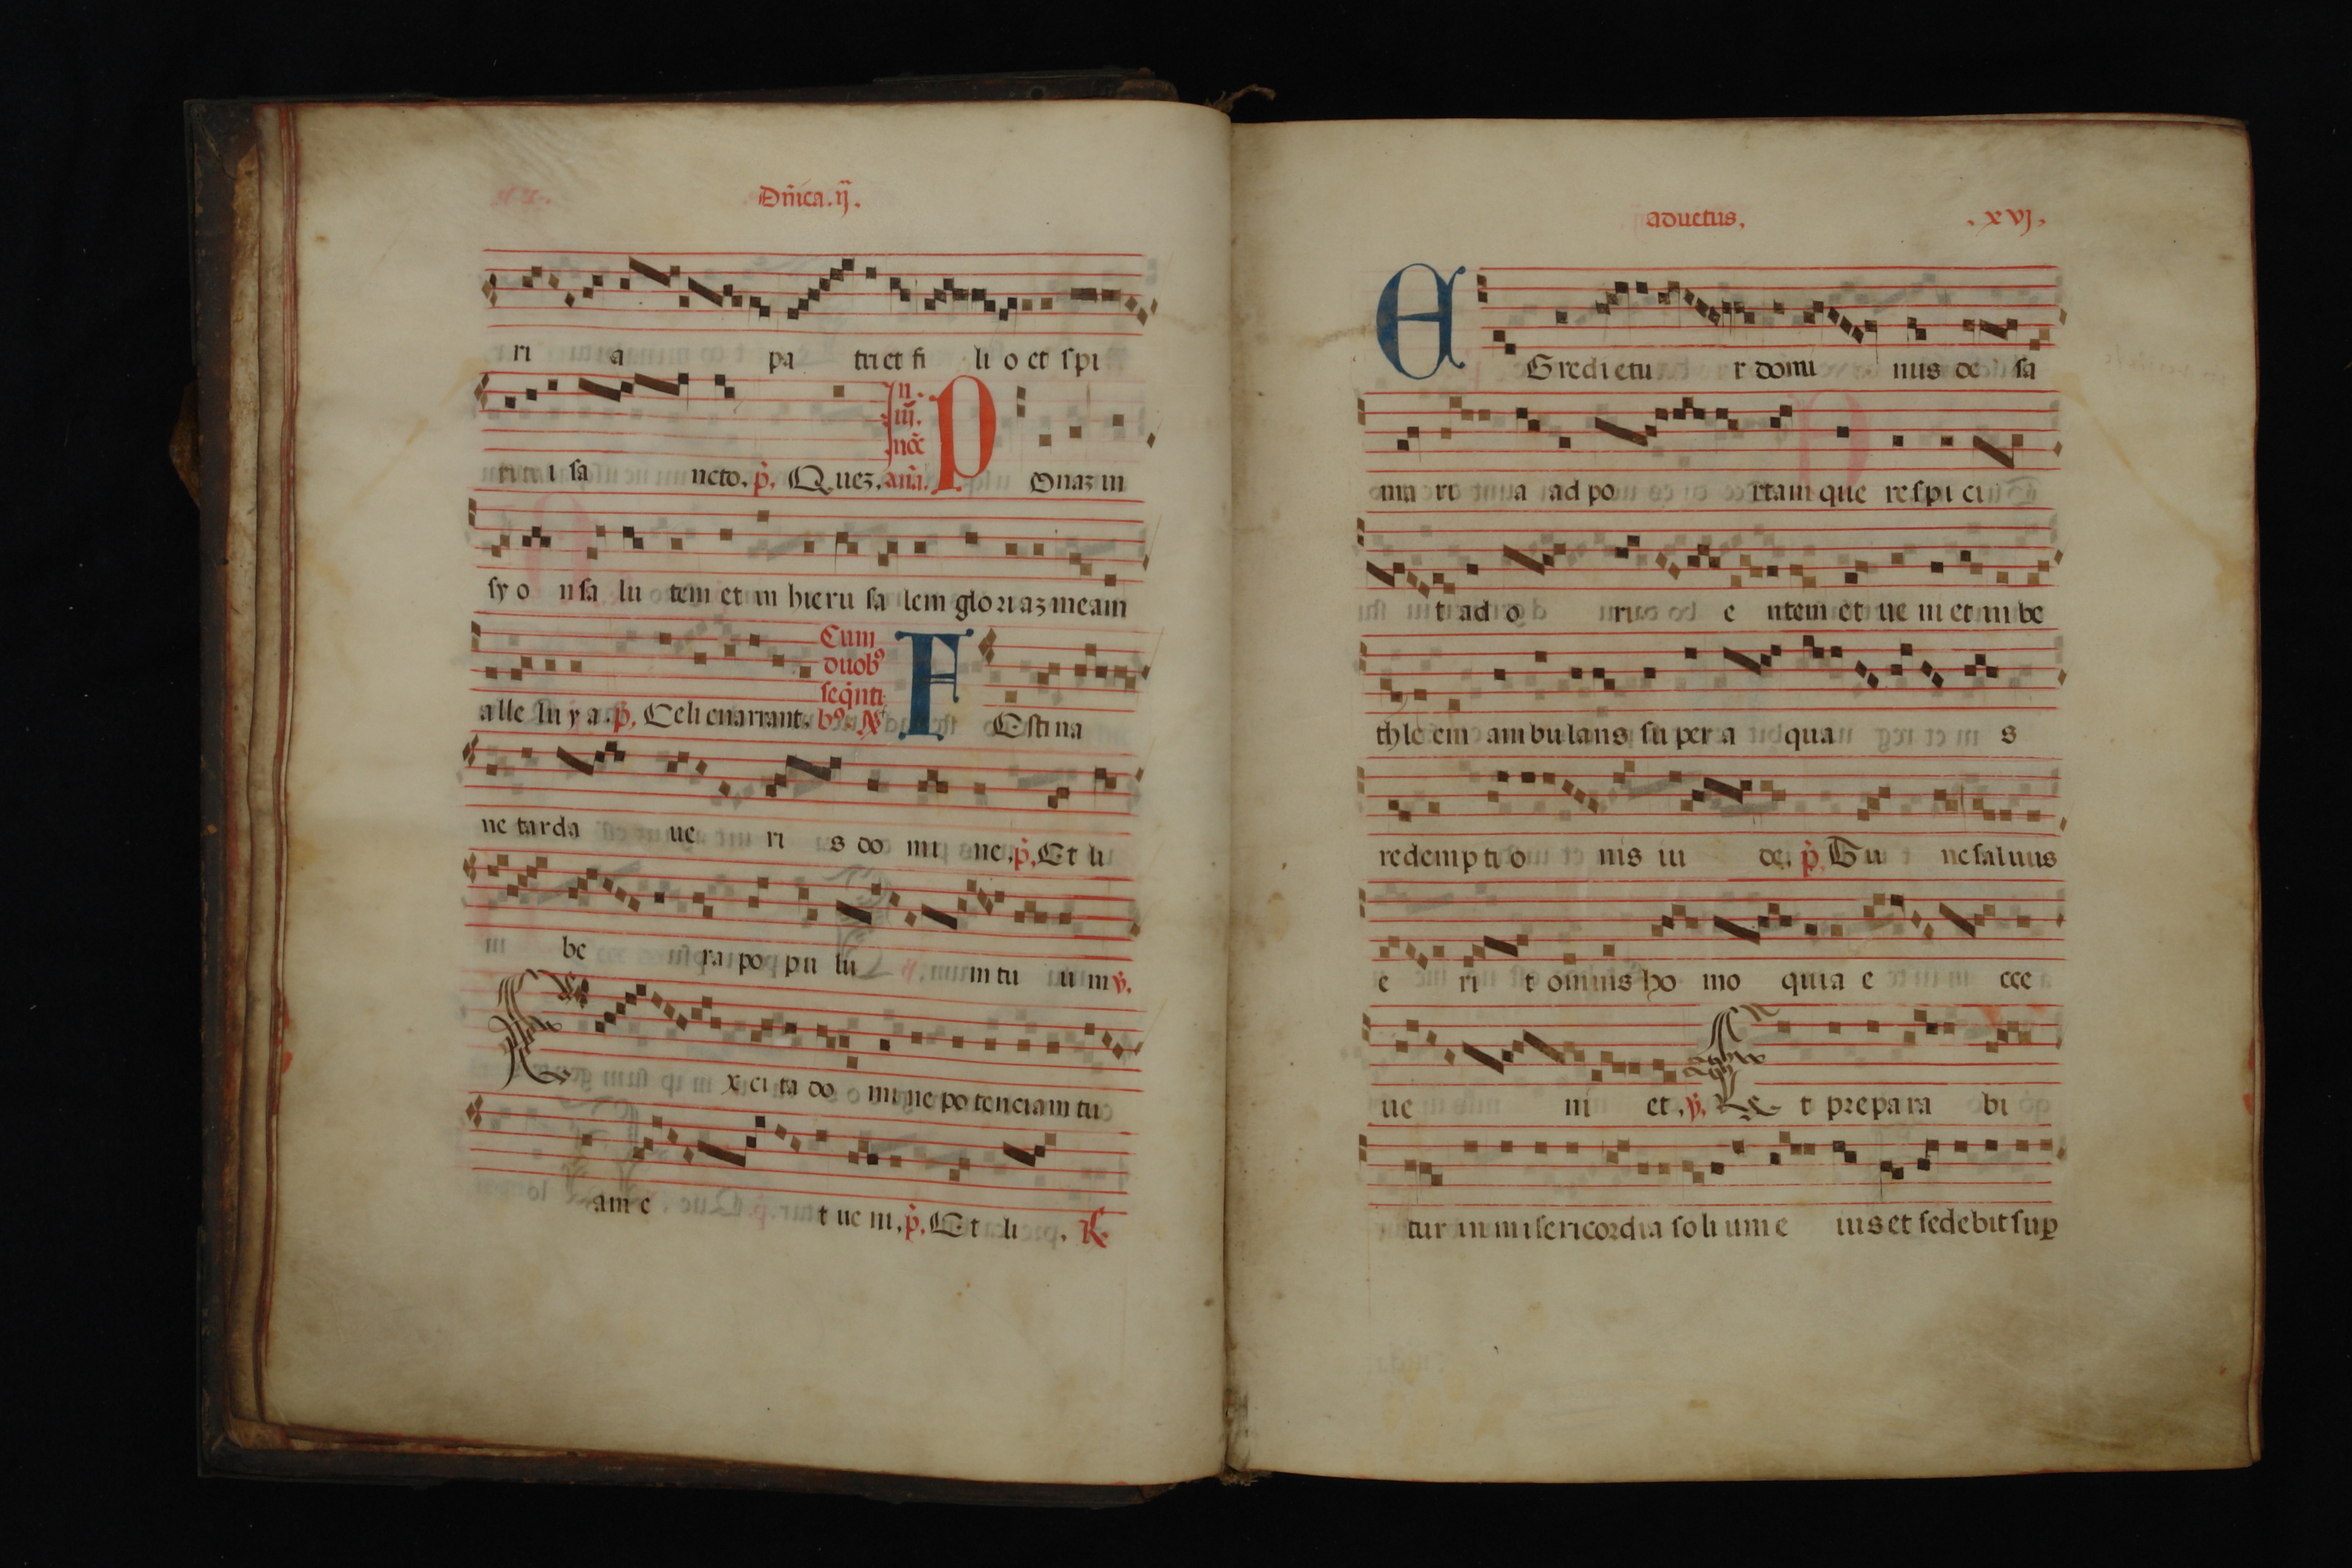 Dñica.ij.
ri a pa tri et fi li o et spi
ritu i sa ncto. p̃. Quez. añã. P onaz in
ij.
iij.
noc̃
syo n sa lu tem et in hieru sa lem gloriaz meam
alle lu y a. p̃. Celi enarrant. bꝰ. ℟ F Esti na
Cum
duobꝰ
seq̃nti
ne tarda ue ri s do mi ne. p̃. Et li
be ra po pu lu m tu u m ℣.
Ex ci ta do mi ne po tenciam tu
am e t ue ni. p̃. Et li . ℟
aduetus.
.xvj.
E Gredietu r domi nus de sa
ma ri a ad po rtam que respi ci
t ad o ri e ntem et ue ni et in be
thle em ambulans su per a qua s
redempti o nis iu de. p̃. Tu ne saluus
e ri t omnis ho mo quia e cce
ue ni et. ℣. Et prepara bi
tur in misericordia soli um e ius et sedebit suꝑ